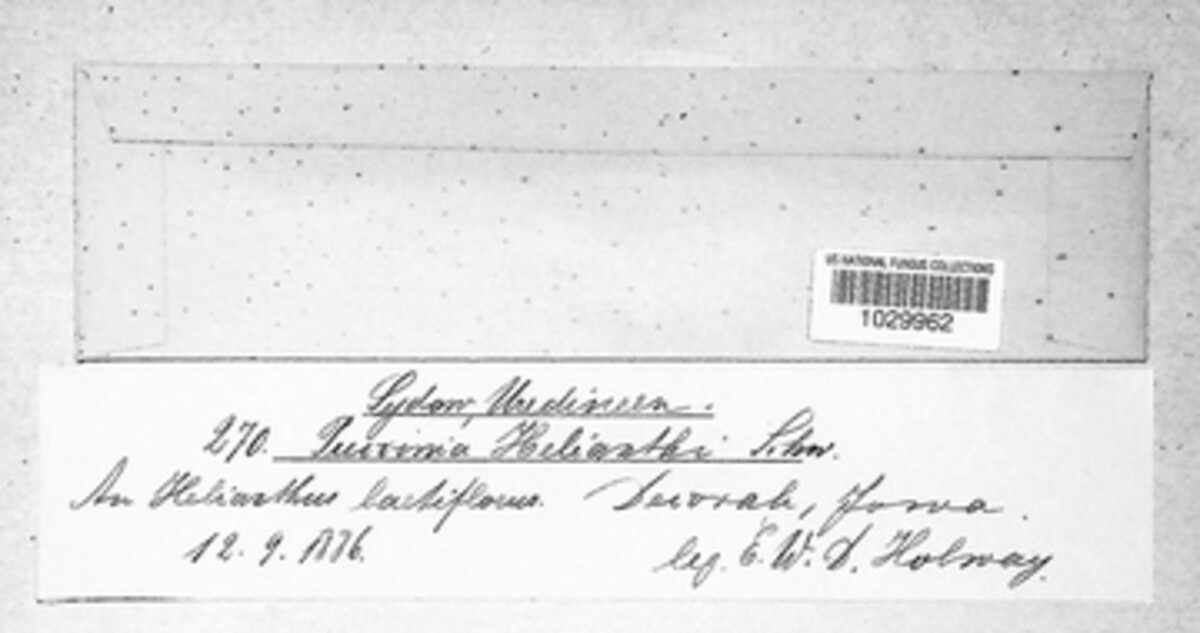 US NATIONAL FUNGUS COLLECTIONS
1029962
Sydow, Uredineen.
270. Puccinia Helianthi Schw.
An Helianthus laetiflorus. Decorah, Iowa.
12. 9. 1886.
leg. E. W. D. Holway.